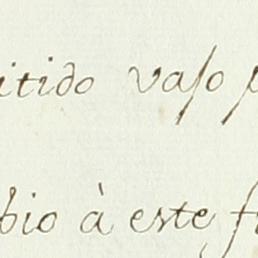 itido vaſo p
bio à este f